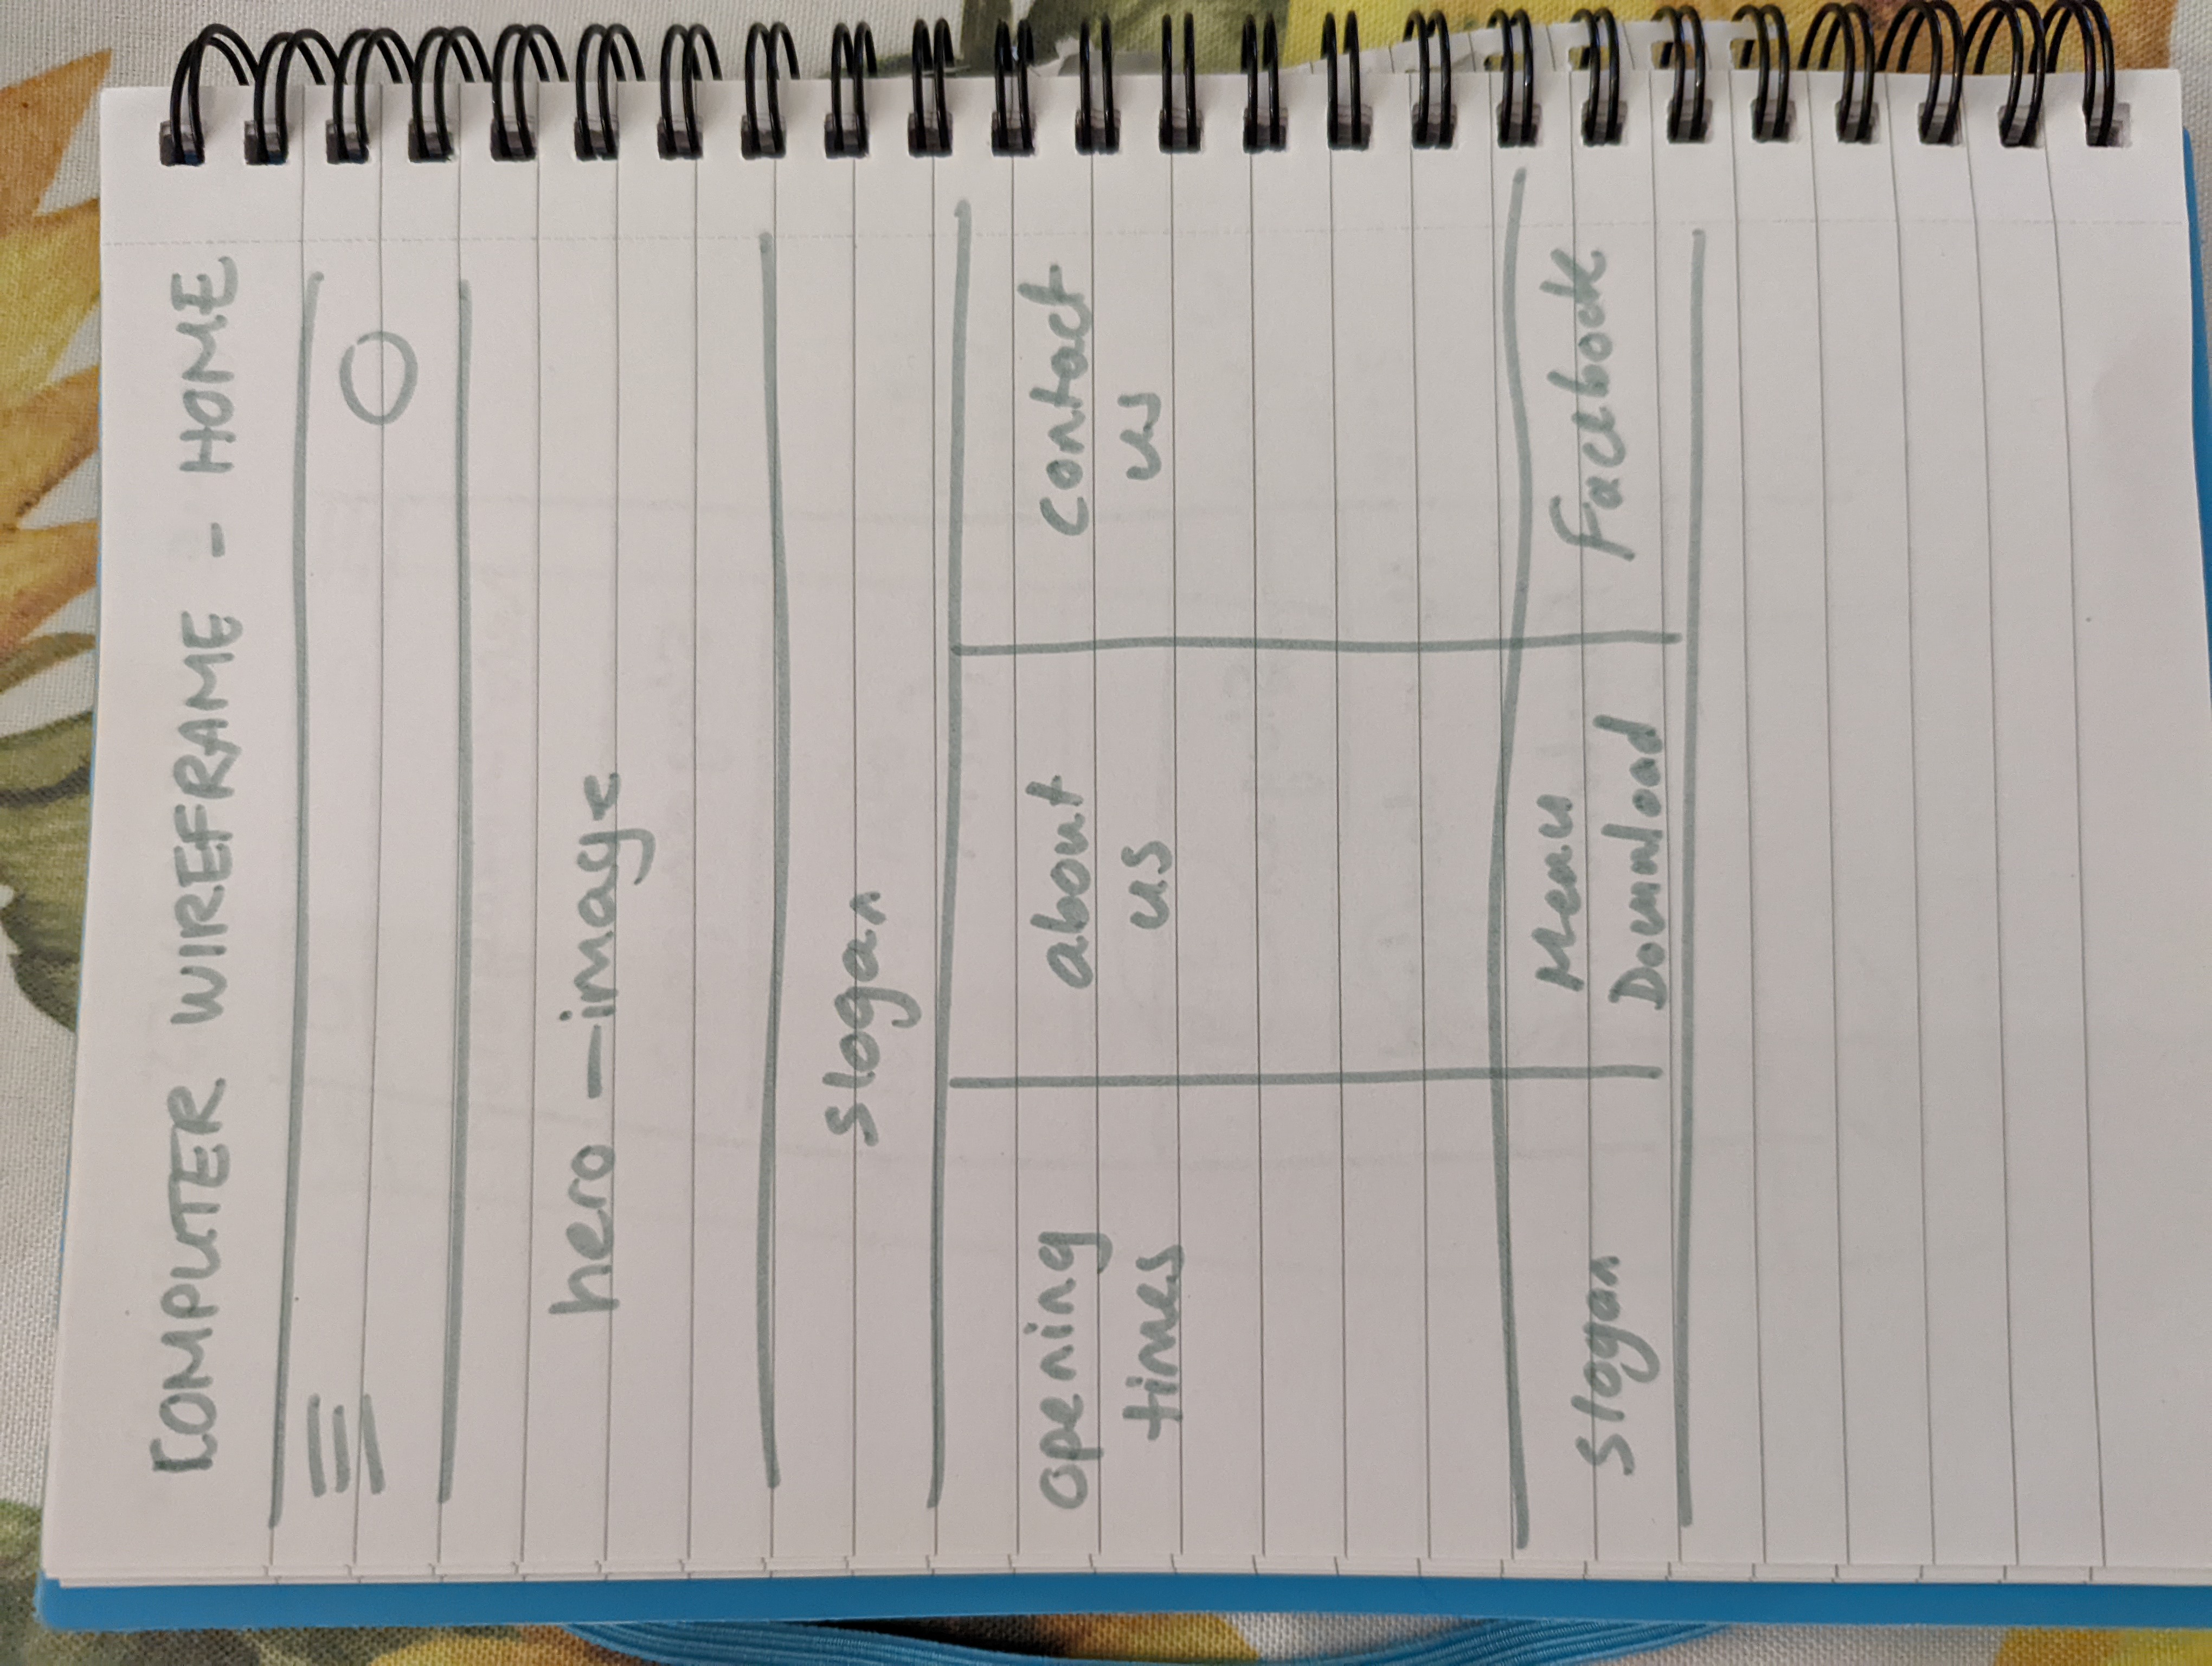 COMPUTER WIREFRAME - HOME
hero-image
slogan
opening
times
about
us
contact
us
slogan
Menu
Download
Facebook